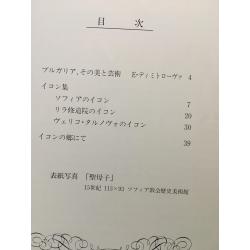 目次
ブルガリア、その美と芸術 E・ディミトローヴァ 4
イコン集
ソフィアのイコン 7
リラ修道院のイコン 20
ヴェリコ・タルノヴォのイコン 30
イコンの郷にて 39
表紙写真 「聖母子」
15世紀 113×93 ソフィア教会歴史美術館